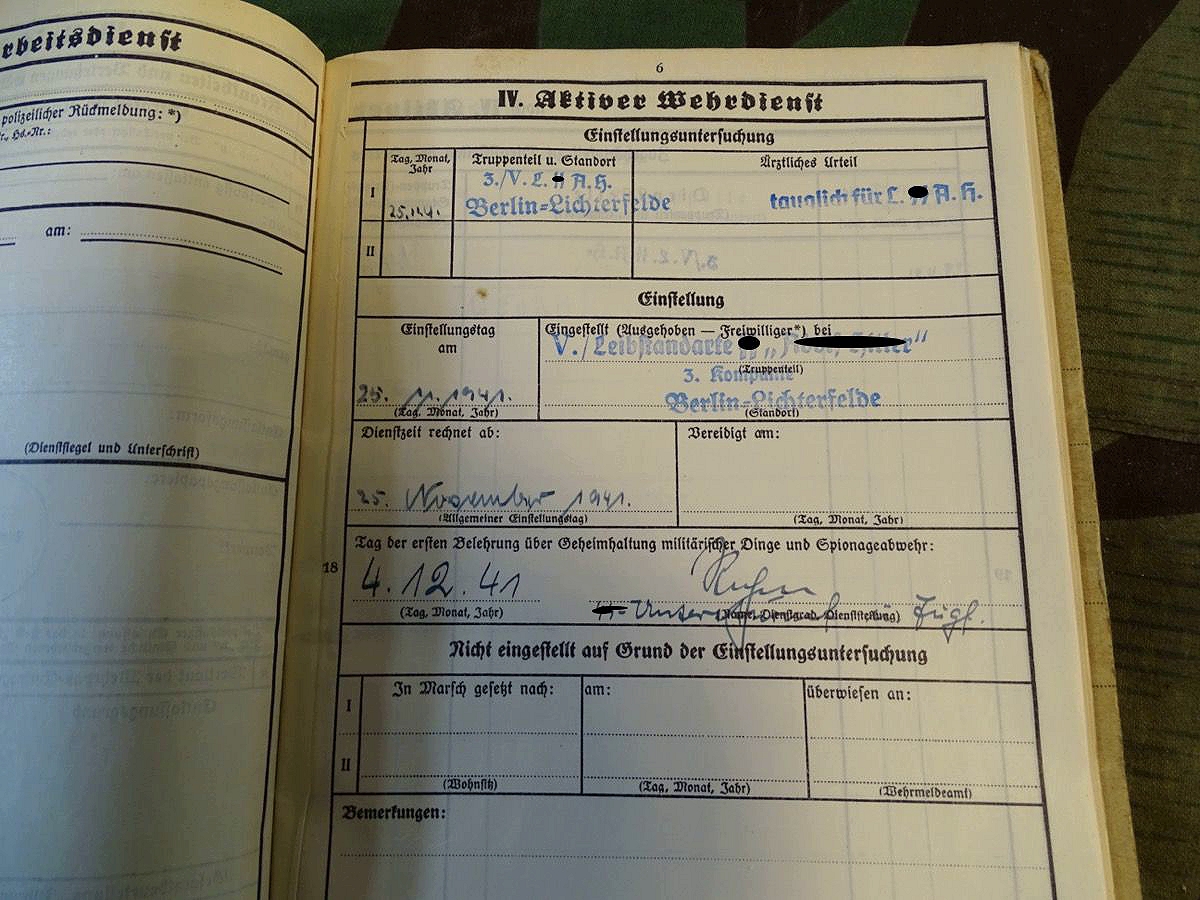 rbeitsdienst
polizeilicher Rückmeldung: *)
Hs.-Nr.:
am:
(Dienstsiegel und Unterschrift)
6
IV. Aktiver Wehrdienst
Einstellungsuntersuchung
Tag, Monat, Jahr
Truppenteil u. Standort
Ärztliches Urteil
I
25.11.41.
3./V. L. A. H.
Berlin-Lichterfelde
tauglich für L. A. H.
II
Einstellung
Einstellungstag
am
25. 11. 1941.
(Tag, Monat, Jahr)
Eingestellt (Ausgehoben — Freiwilliger*) bei
V./Leibstandarte „Adolf Hitler“
(Truppenteil)
3. Kompanie
Berlin-Lichterfelde
(Standort)
Dienstzeit rechnet ab:
25. November 1941.
(Allgemeiner Einstellungstag)
Vereidigt am:
(Tag, Monat, Jahr)
18
Tag der ersten Belehrung über Geheimhaltung militärischer Dinge und Spionageabwehr:
4.12.41
(Tag, Monat, Jahr)
(Name, Dienstgrad, Dienststellung)
Nicht eingestellt auf Grund der Einstellungsuntersuchung
I
In Marsch gesetzt nach:
am:
überwiesen an:
II
(Wohnsitz)
(Tag, Monat, Jahr)
(Wehrmeldeamt)
Bemerkungen: